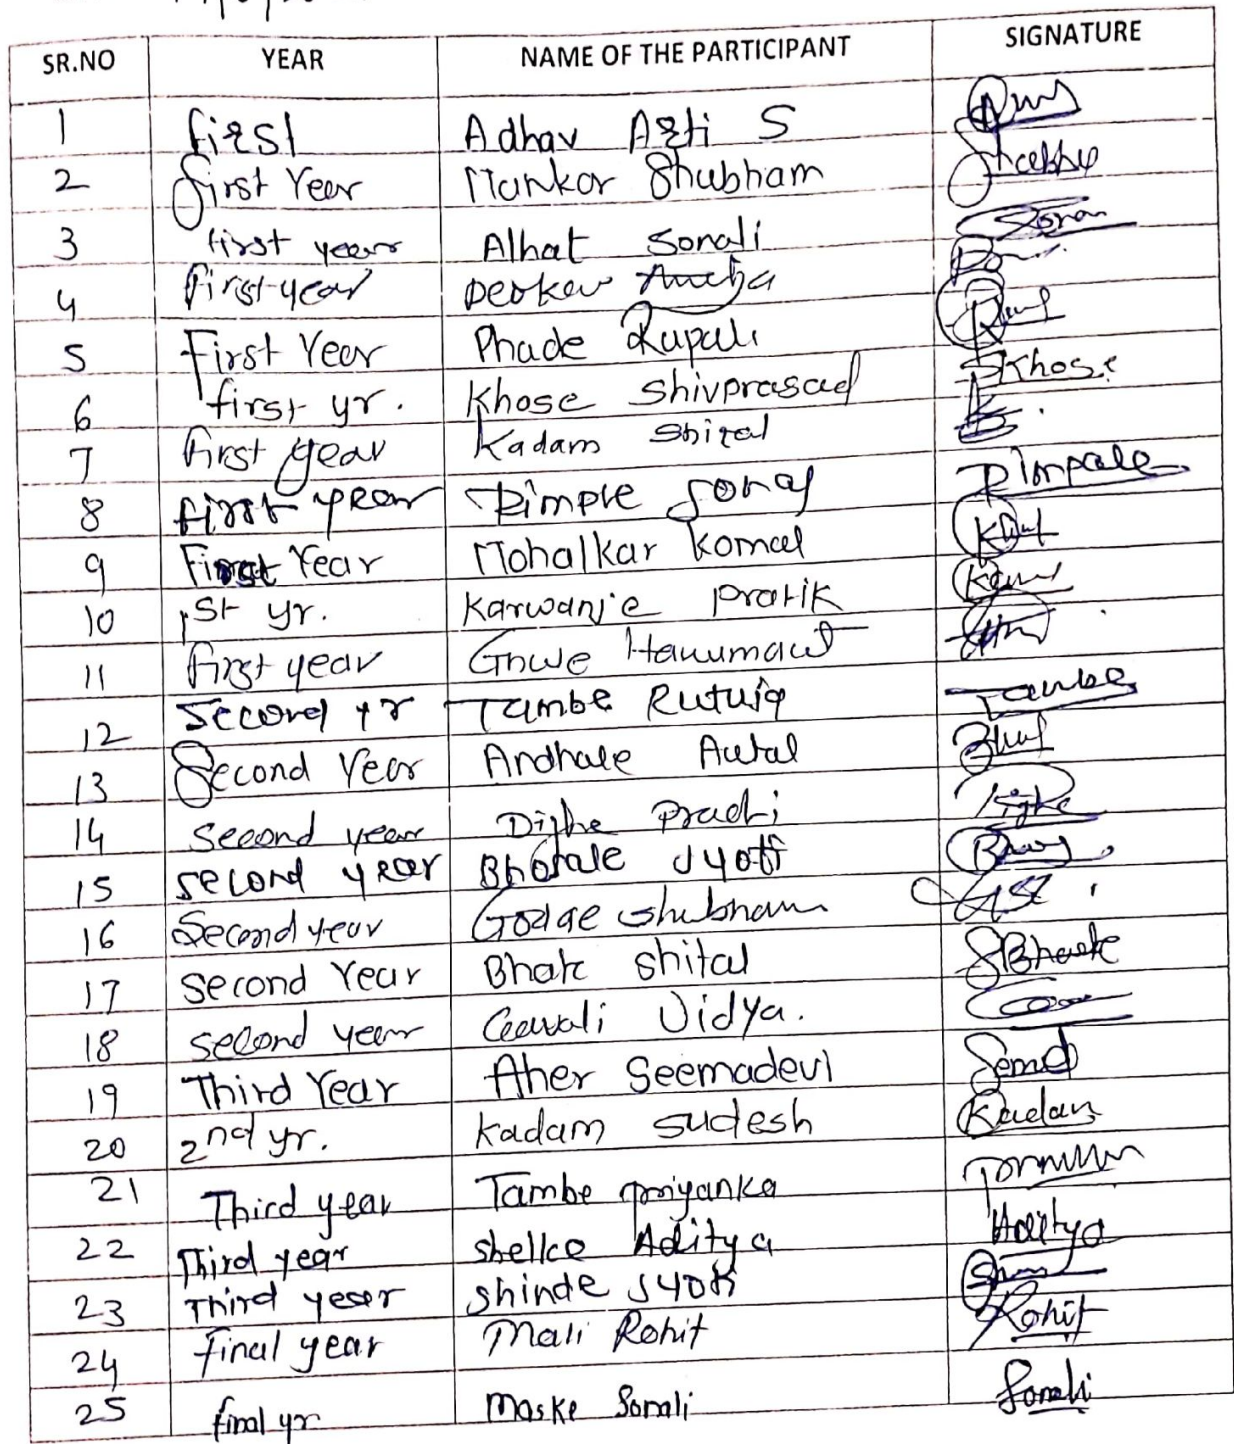 SR.NO YEAR NAME OF THE PARTICIPANT SIGNATURE
1 first Adhav Arti S
2 First Year Munkar Shubham
3 first year Alhat Sonali
4 first year Deokar
5 First Year Phade Rupali
6 first yr. Khose Shivprasad SKhose
7 first year Kadam Shital
8 first year Dimple
9 First Year Mohalkar Komal
10 1st yr. Karwanje Pratik
11 first year Hanumant
12 Second yr Tambe Rutuja Tambe
13 Second Year Andhale
14 Second year Dighe Prachi Dighe
15 second year Jyoti
16 Second year Shubham
17 Second Year Shital
18 second year Gawali Vidya.
19 Third Year Aher Seemadevi
20 2nd yr. Kadam Sudesh Kadam
21 Third year Tambe Priyanka
22 Third year Shelke Aditya Aditya
23 Third year Shinde Jyoti
24 final year Mali Rohit Rohit
25 final yr Maske Sonali Sonali